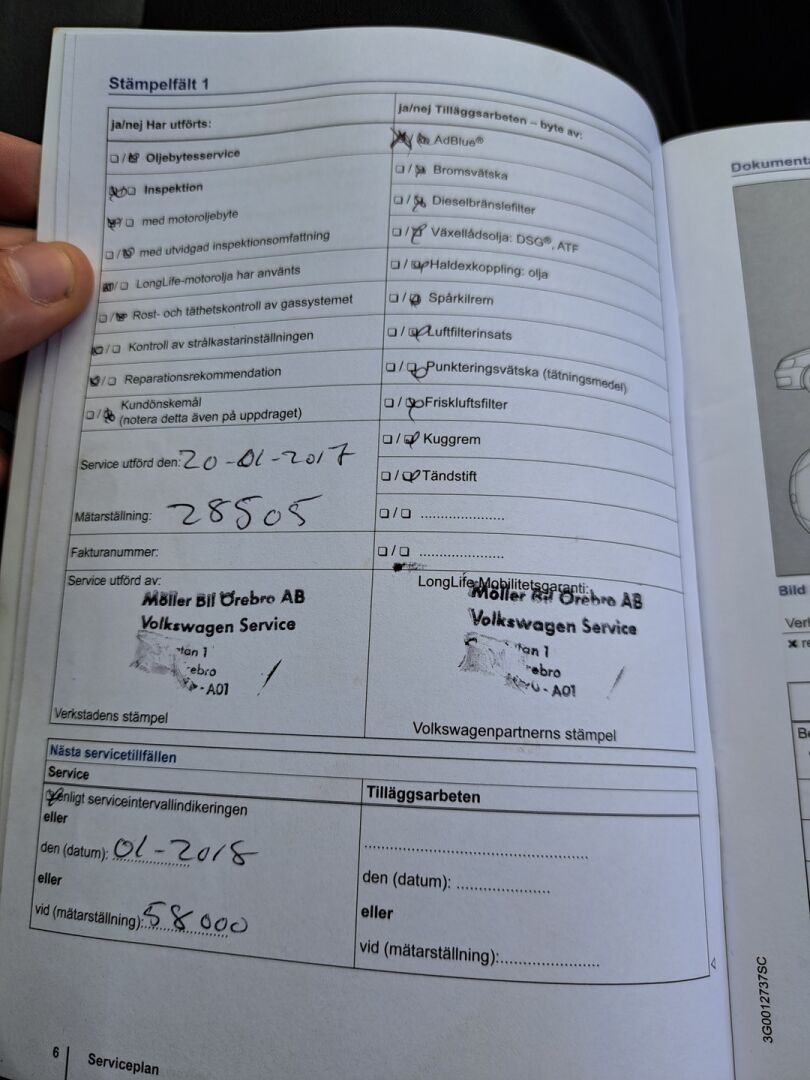 Stämpelfält 1
ja/nej Har utförts:
/ Oljebytesservice
/ Inspektion
/ med motoroljebyte
/ med utvidgad inspektionsomfattning
/ LongLife-motorolja har använts
/ Rost- och täthetskontroll av gassystemet
/ Kontroll av strålkastarinställningen
/ Reparationsrekommendation
/ Kundönskemål
(notera detta även på uppdraget)
Service utförd den: 20-01-2017
Mätarställning: 28505
Fakturanummer:
ja/nej Tilläggsarbeten – byte av:
/ AdBlue®
/ Bromsvätska
/ Dieselbränslefilter
/ Växellådsolja: DSG®, ATF
/ Haldexkoppling: olja
/ Spårkilrem
/ Luftfilterinsats
/ Punkteringsvätska (tätningsmedel)
/ Friskluftsfilter
/ Kuggrem
/ Tändstift
/ .....................
/ .....................
Service utförd av:
Möller Bil Örebro AB
Volkswagen Service
tan 1
ebro
- A01
Verkstadens stämpel
LongLife-Mobilitetsgaranti:
Möller Bil Örebro AB
Volkswagen Service
tan 1
ebro
- A01
Volkswagenpartnerns stämpel
Nästa servicetillfällen
Service
Enligt serviceintervallindikeringen
eller
den (datum): 01-2018
eller
vid (mätarställning): 58000
Tilläggsarbeten
den (datum): .....................
eller
vid (mätarställning):.....................
6 | Serviceplan
3G0012737SC
Dokumenta
Bild